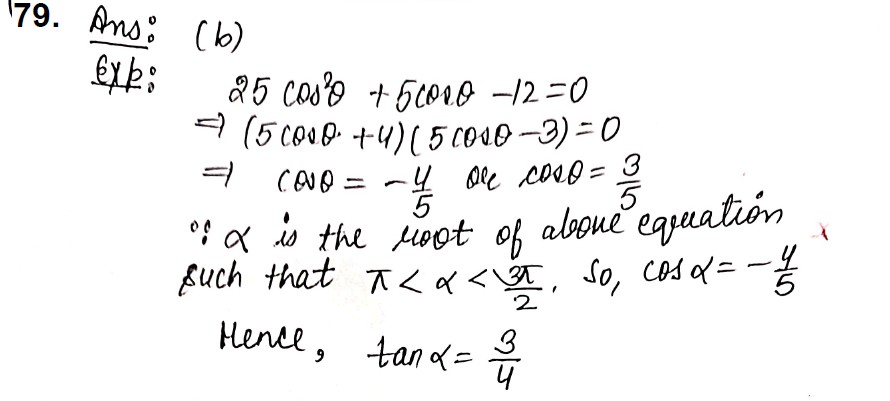 179. Ans: (b)
Exp:
25 cos²θ + 5cosθ - 12 = 0
⇒ (5 cosθ + 4)(5 cosθ - 3) = 0
⇒ cosθ = -4/5 or cosθ = 3/5
∵ α is the root of above equation
such that π < α < 3π/2. So, cos α = -4/5
Hence, tan α = 3/4